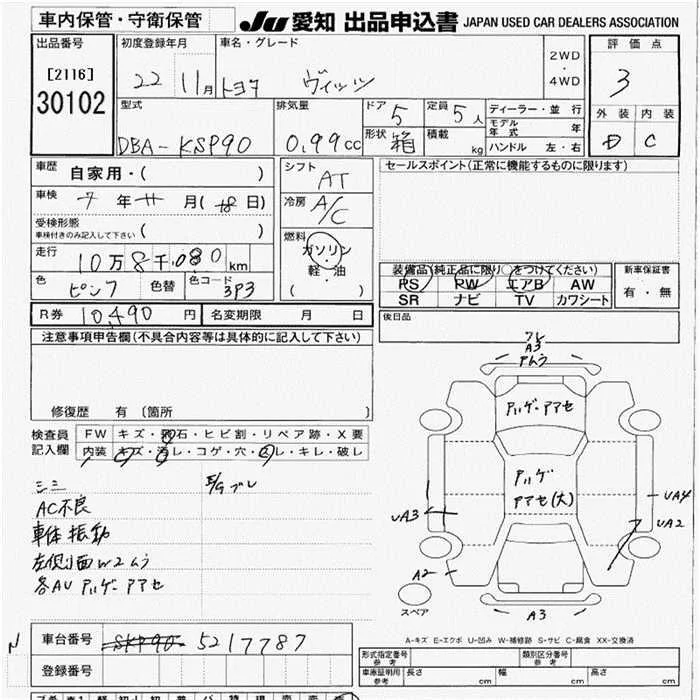 車内保管・守衛保管
JU 愛知 出品申込書 JAPAN USED CAR DEALERS ASSOCIATION
出品番号
[2116]
30102
初度登録年月
22 11月
車名・グレード
トヨタ ヴィッツ
2WD
・
4WD
評価点
3
外装 内装
D C
型式
DBA-KSP90
排気量
0.99cc
ドア 5
定員 5人
形状 箱
積載 kg
ディーラー・並行
モデル年式 年
ハンドル 左・右
車歴
自家用・( )
車検
年 月( 日)
受検形態
車検付きのみ記入して下さい ( )
走行
10万8千080km
色
ピンク
色替
色コード
3P3
シフト
AT
冷房
A/C
燃料
ガソリン
・
軽・油
( )
セールスポイント(正常に機能するものに限ります)
装備品(純正品に限り○をつけてください)
PS PW エアB AW
SR ナビ TV カワシート
新車保証書
有・無
R券 10,490円 名変期限 月 日
後日品
注意事項申告欄(不具合内容等は具体的に記入して下さい)
修復歴 有 〔箇所 〕
検査員
記入欄
FW キズ・飛石・ヒビ割・リペア跡・X要
内装 キズ・汚レ・コゲ・穴・スレ・キレ・破レ
AC不良
車体振動
左側面W2ムラ
各AU アリゲーアアセ
E/Gブレ
A3
アムラ
アリゲーアアセ
アリゲ
アアセ(大)
UA3
UA4
UA2
A2
A3
スペア
A-キズ E-エクボ U-凹み W-補修跡 S-サビ C-腐食 XX-交換済
N
車台番号 SKP90 5217787
登録番号
形式指定番号
参考
類別区分番号
参考
車庫証明用
参考
長さ cm 幅 cm 高さ cm